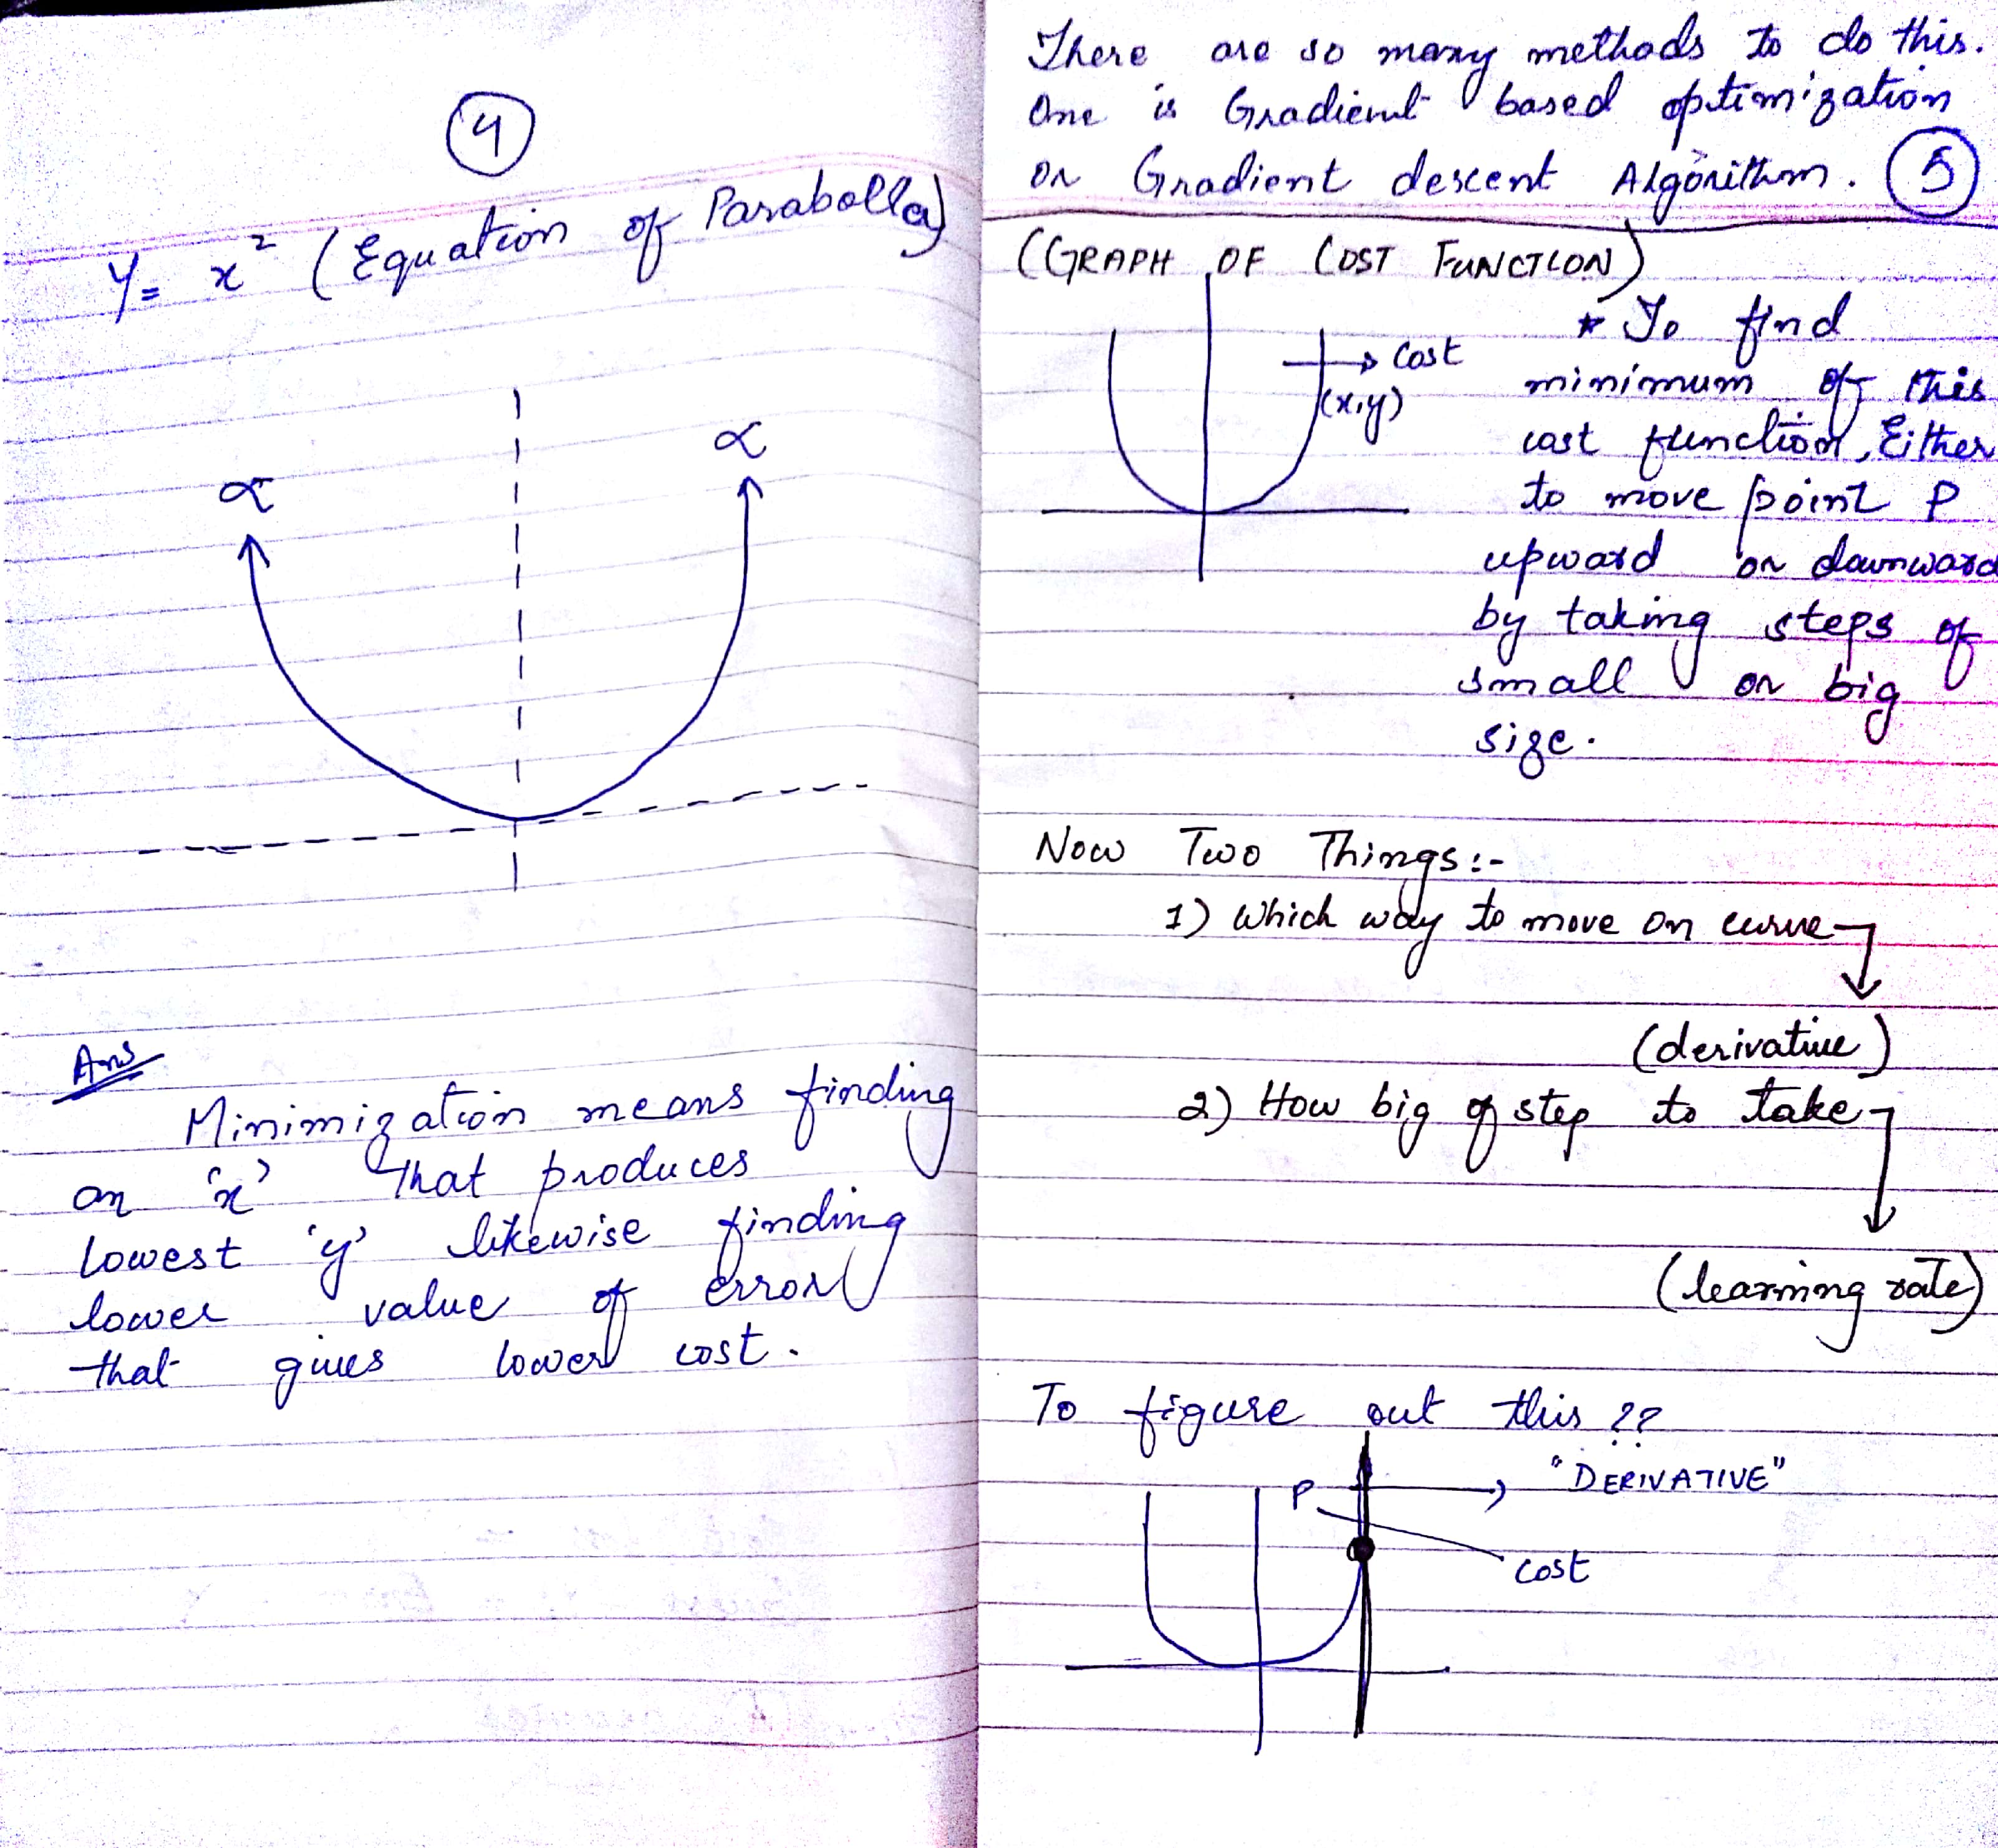 4
Y = x² (Equation of Parabolla)
∝ ∝
Ans
Minimization means finding
an 'x' that produces
lowest 'y' likewise finding
lower value of error
that gives lower cost.
There are so many methods to do this.
One is Gradient based optimization
or Gradient descent Algorithm. 5
(GRAPH OF COST FUNCTION)
* To find
→ Cost
minimum of this
(x,y)
cost function, Either
to move point P
upward or downward
by taking steps of
small or big
size.
Now Two Things:-
1) Which way to move on curve
(derivative)
2) How big of step to take
(learning rate)
To figure out this ??
P → "DERIVATIVE"
cost